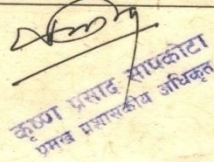 कृष्ण प्रसाद सापकोटा
प्रमुख प्रशासकीय अधिकृत